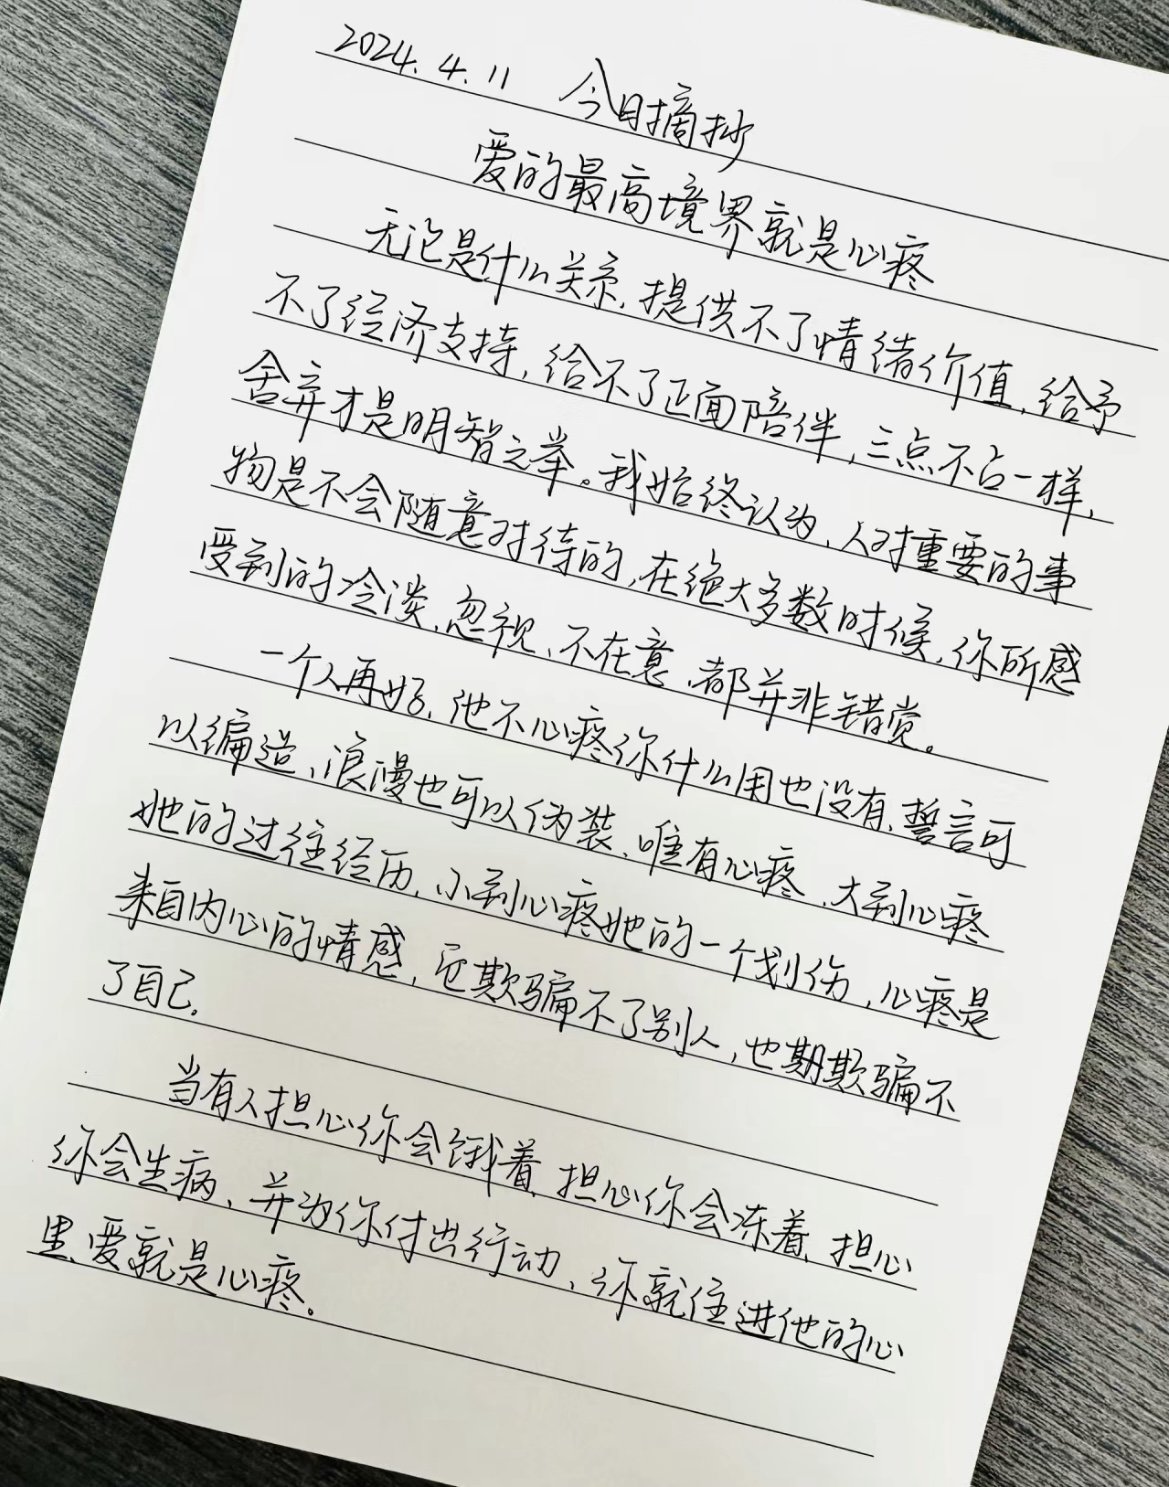 2024.4.11 今日摘抄
爱的最高境界就是心疼
无论是什么关系,提供不了情绪价值,给予
不了经济支持,给不了正面陪伴,三点不占一样,
舍弃才是明智之举。我始终认为,人对重要的事
物是不会随意对待的,在绝大多数时候,你所感
受到的冷淡、忽视、不在意,都并非错觉。
一个人再好,他不心疼你什么用也没有,誓言可
以编造、浪漫也可以伪装、唯有心疼,大到心疼
她的过往经历,小到心疼她的一个划伤,心疼是
来自内心的情感,它欺骗不了别人,也期欺骗不
了自己.
当有人担心你会饿着,担心你会冻着,担心
你会生病、并为你付出行动、你就住进他的心
里,爱就是心疼。